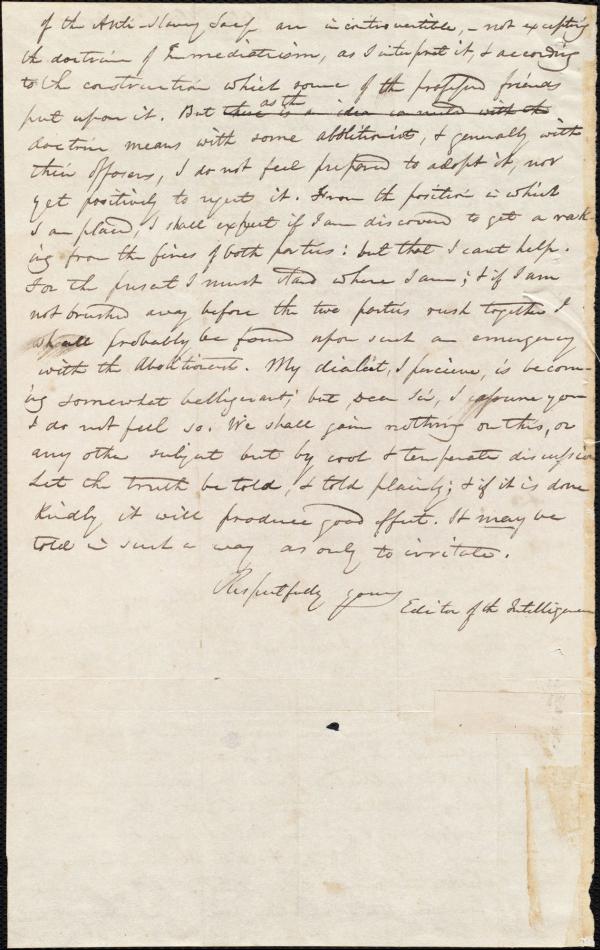 of the Anti-Slavery Socy are incontrovertible, - not excepting
the doctrine of Immediatism, as I interpret it, & according
to the construction which some of the professed friends
put upon it. But as the there is an idea connected with the
doctrine means with some abolitionists, & generally with
their opposers, I do not feel prepared to adopt it, nor
yet positively to reject it. From the position in which
I am placed, I shall expect if I am discovered to get a rak-
ing from the fires of both parties: but that I cant help.
For the present I must stand where I am; & if I am
not brushed away before the two parties rush together I
shall probably be found upon such an emergency
with the Abolitionists. My dialect, I perceive, is becom-
ing somewhat belligerant; but, Dear Sir, I assure you
I do not feel so. We shall gain nothing on this, or
any other subject but by cool & temperate discussion
Let the truth be told, & told plainly; & if it is done
kindly it will produce good effect. It may be
told in such a way as only to irritate.
Respectfully yours
Editor of the Intelligencer